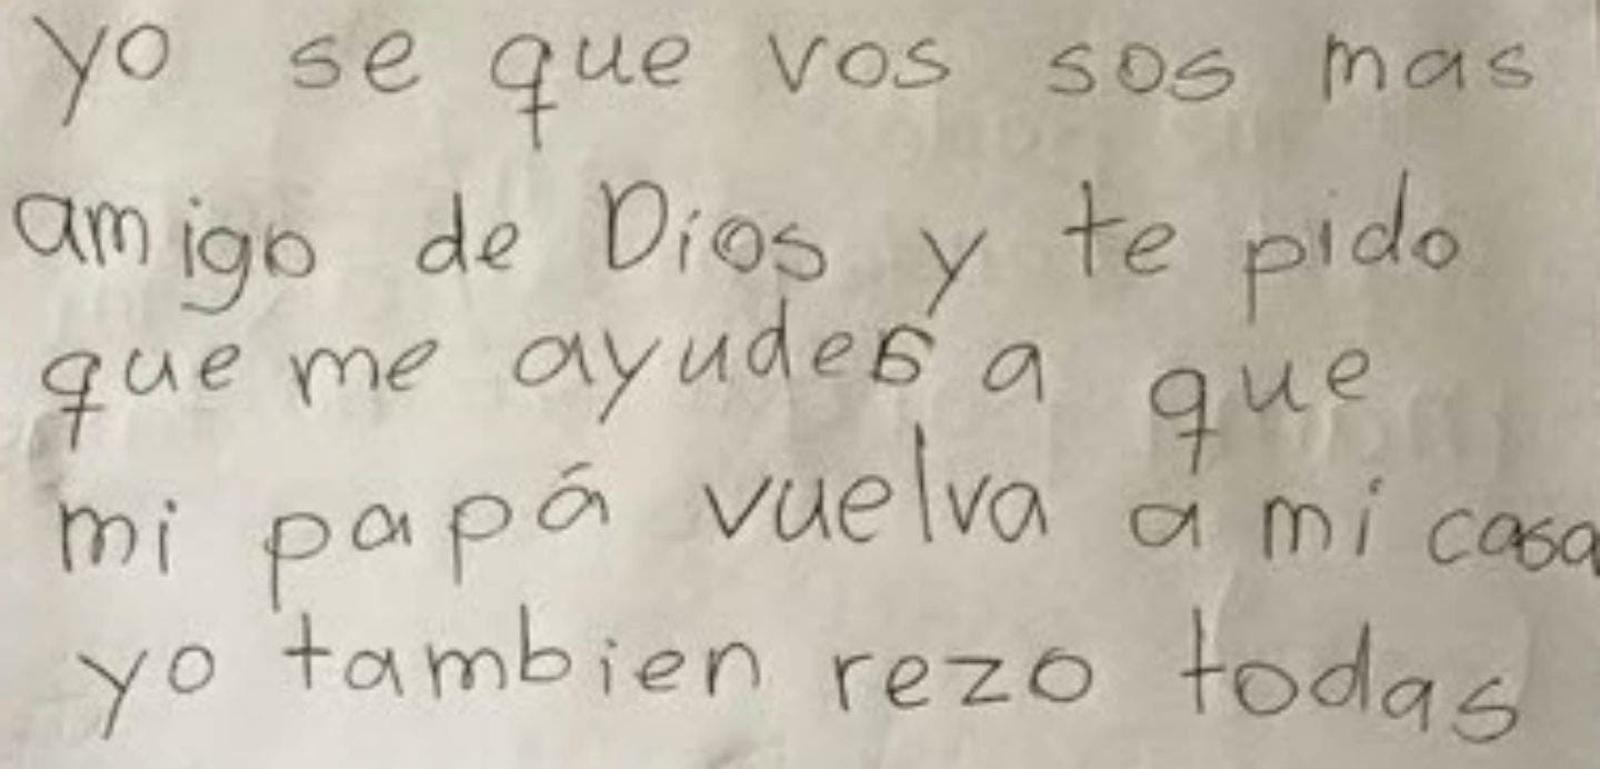 yo se que vos sos mas
amigo de Dios y te pido
que me ayudes a que
mi papá vuelva a mi casa
yo tambien rezo todas